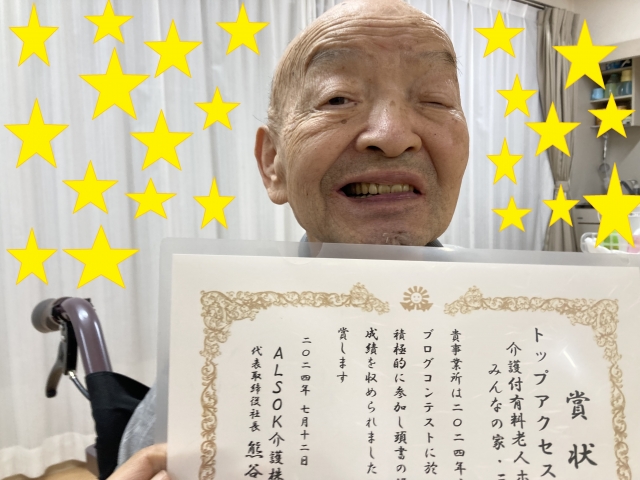 賞状
トップアクセス
介護付有料老人ホ
みんなの家・
貴事業所は二〇二四年
ブログコンテストに於
積極的に参加し頭書の
成績を収められました
賞します
二〇二四年 七月十二日
ALSOK介護株
代表取締役社長 熊谷